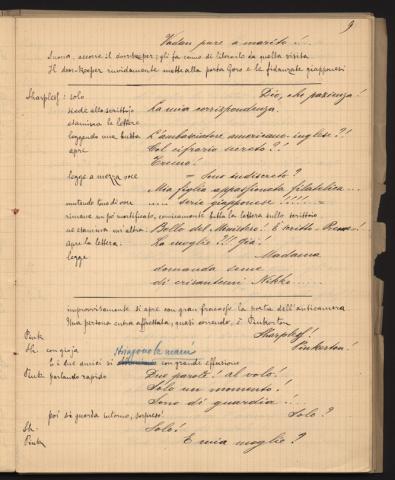 9
Vadan pure a marito!...
Suona: accorre il door-keeper: gli fa cenno di liberarlo da quella visita.
Il door-keeper ruvidamente mette alla porta Goro e le fidanzate giapponesi
Sharpless: solo Dio, che pazienza!
siede allo scrittoio La mia corrispondenza.
esamina le lettere
leggendo una busta L'ambasciatore americano-inglese?!
apre Col cifrario secreto?!
Tremo!
legge a mezza voce = Sono indiscreto?
Mia figlia appassionata filatelica...
mutando tono di voce .... serie giapponese!!!!....
rimane un po' mortificato, comicamente butta la lettera sullo scrittoio
ne esamina un'altra: Bollo del Ministero! È scritto
apre la lettera: La moglie?!! Già!
legge Madama
domanda seme
di crisantemi Nikko.....
improvvisamente si apre con gran fracasso la porta dell'anticamera
Una persona entra affrettata, quasi correndo, è Pinkerton
Pink Sharpless!
Sh. con gioja Pinkerton!
stringono le mani
E i due amici si con grande effusione
Pink parlando rapido Due parole! al volo!
Solo un momento!
Sono di guardia!...
poi si guarda intorno, sorpreso! Solo?
Sh. Solo!
Pink E mia moglie?